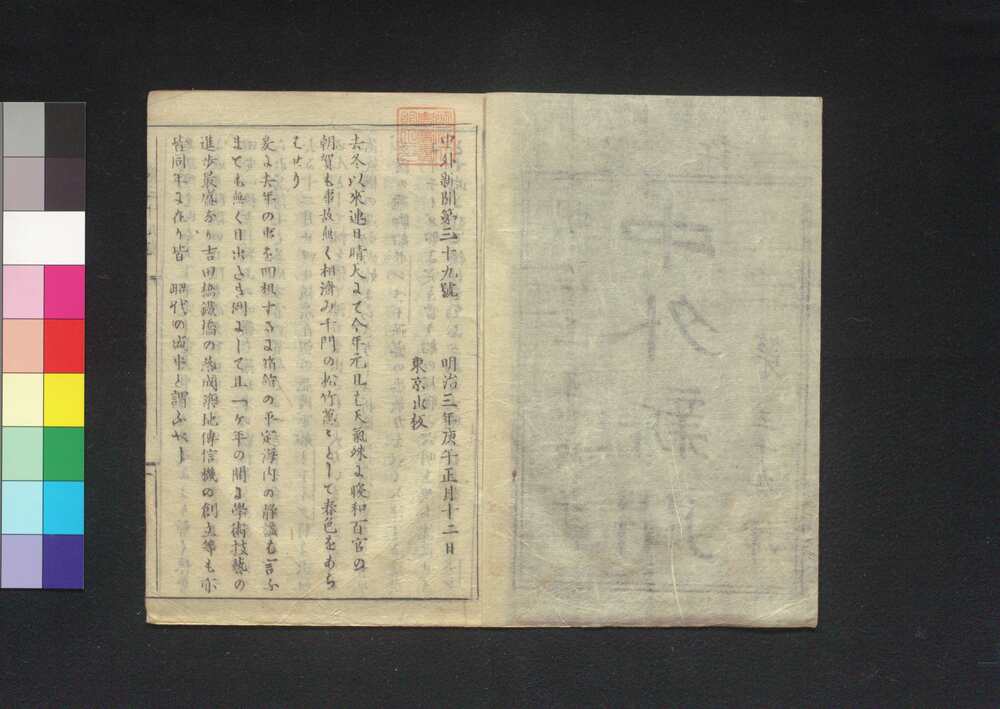 中外新聞第三十九號 明治三年庚午正月十二日
東京出板
去冬以來連日晴天にて今年元旦も天氣殊に暖和百官の
朝賀も事故無く相濟み千門の松竹蔥々として春色をあら
はせり
爰に去年の事を回想するに箱館の平定海内の靜謐は言ふ
までも無く目出度き例にして凡一ケ年の間に學術技藝の
進歩最盛なり吉田橋鐵橋の落成海地傳信機の創立等も亦
皆同年に在り皆 昭代の盛事と謂ふべし
中外新聞